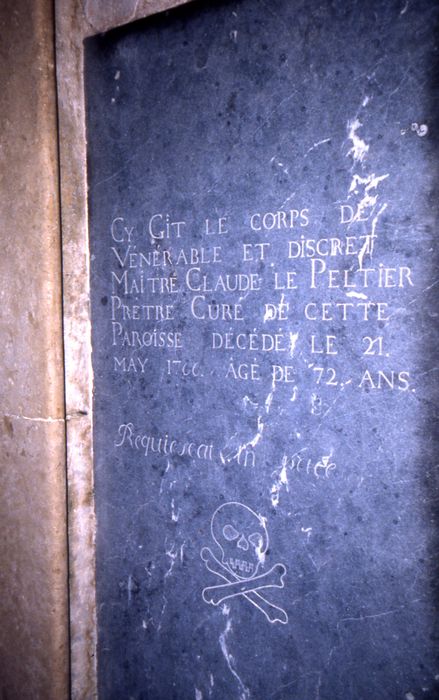 CY GIT LE CORPS DE
VÉNÉRABLE ET DISCRET
MAITRE CLAUDE LE PELTIER
PRETRE CURE DE CETTE
PAROISSE DÉCÉDÉ LE 21.
MAY 1766. ÂGÉ DE 72. ANS.
Requiescat in pace